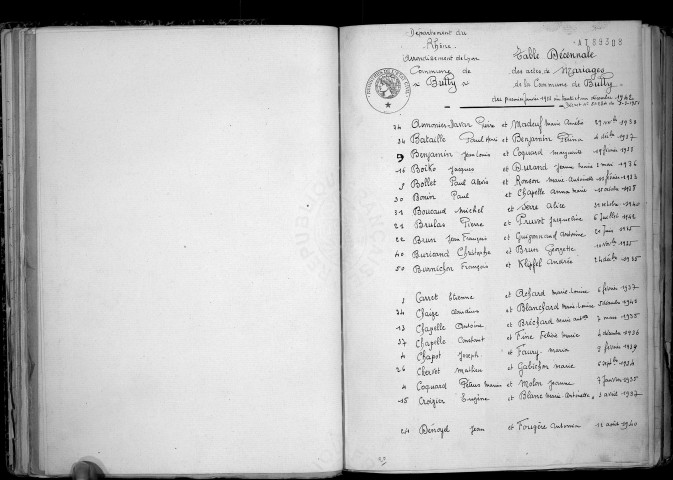 Département du
Rhône
Arrondissement de Lyon
Commune de
" Bully "
A789308
Table Décennale
des actes de Mariages
de la Commune de Bully
du premier Janvier 1933 au trente et un décembre 1942
34 Armonier Pierre et Madeuf Marie 1938
34 Bataille Paul et Benjamin 1937
9 Benjamin Jean Louis et Coquard Marguerite février 1938
16 Boïko Jacques et Durand Jeanne mai 1936
8 Bollet Paul Alexis et Ronzon Marie Antoinette
30 Bonin Paul et Chapelle Anna Marie octobre 1938
31 Boucaud Michel et Serre Alice 1940
21 Brulas Pierre et Pruvot Jacqueline 6 Juillet 1942
22 Brun Jean François et Guigonnand Antoinine 20 Juin 1935
40 Christophe et Brun Georgette 1935
50 Burnichon François et Klipfel Andrée 1935
5 Carret Etienne et Achard Marie Louise 6 février 1937
34 Chaize Claudius et Blanchard Marie Louise 5 décembre 1942
13 Chapelle Antoine et Bréchard Marie 7 mars 1935
37 Chapelle Constant et Fine Félicie Marie décembre 1936
4 Chapot Joseph et Faury Maria février 1939
26 Chervet Mathieu et Gabichon Marie 1934
4 Coquard Pétrus Marius et Molon Jeanne 7 Janvier 1935
15 Croizier Eugène et Blanc Marie Antoinette 3 avril 1937
24 Jean et Fougère 12 août 1940